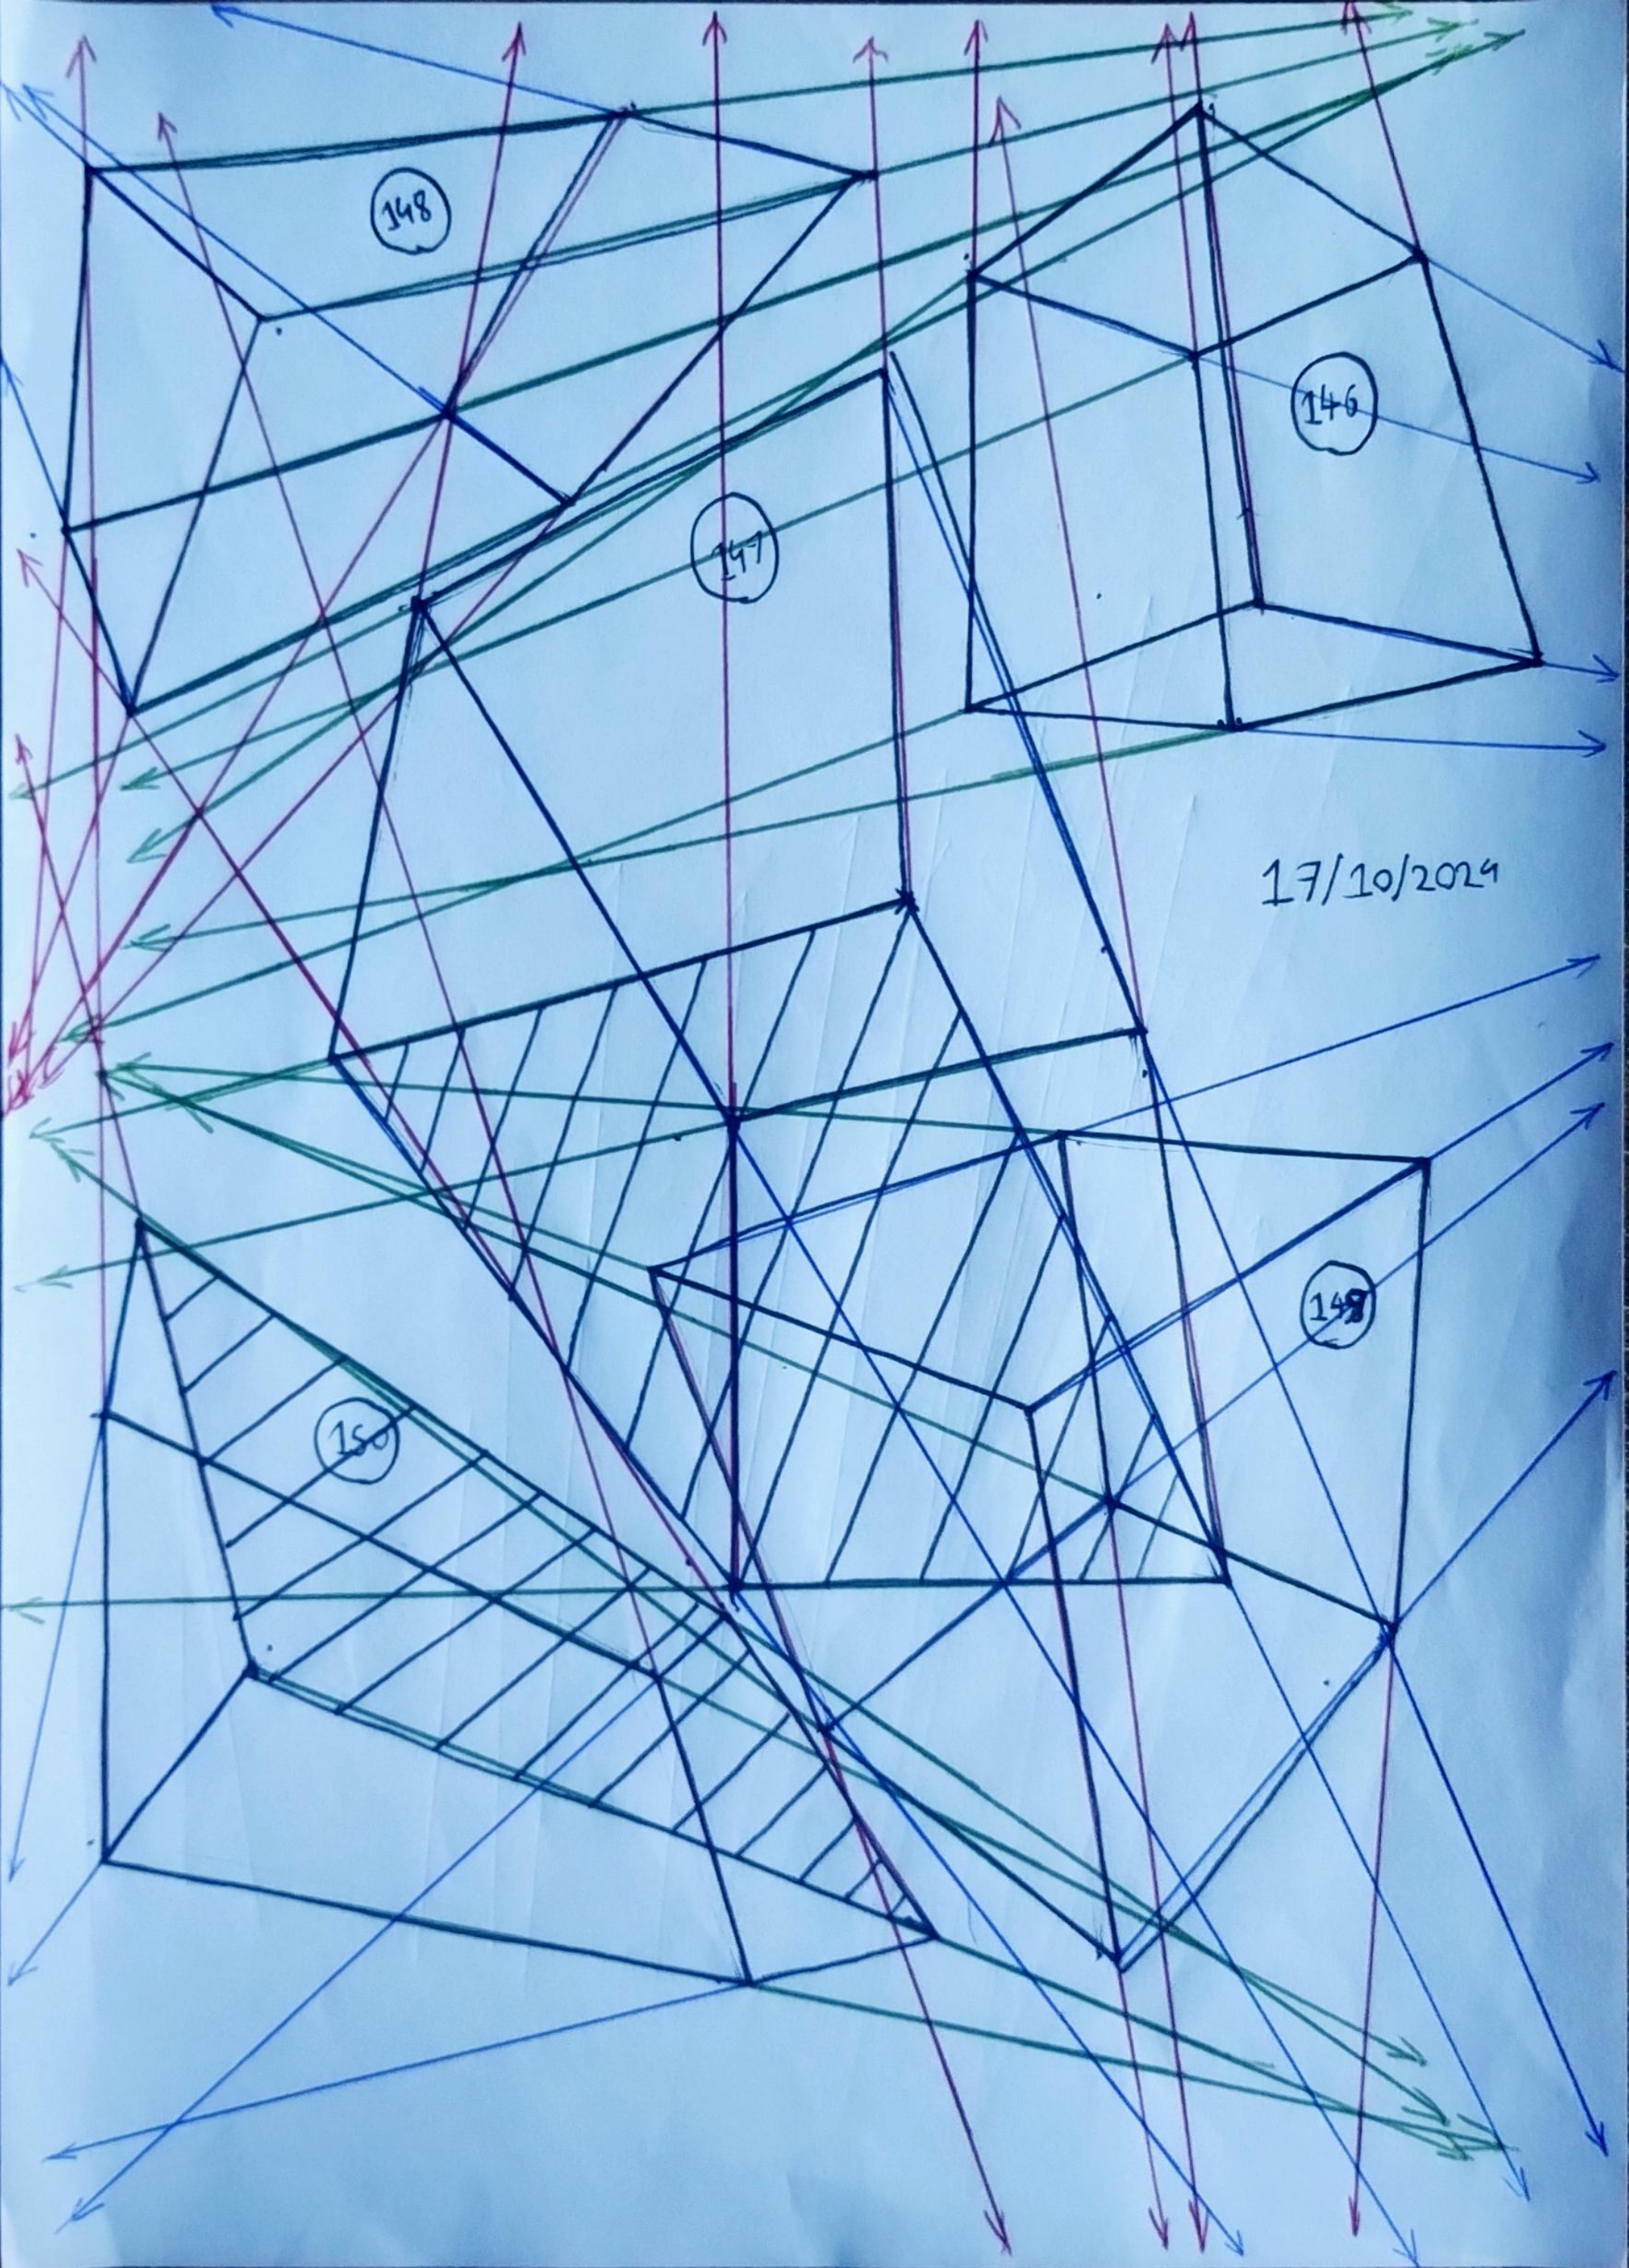 148
146
147
17/10/2024
149
150